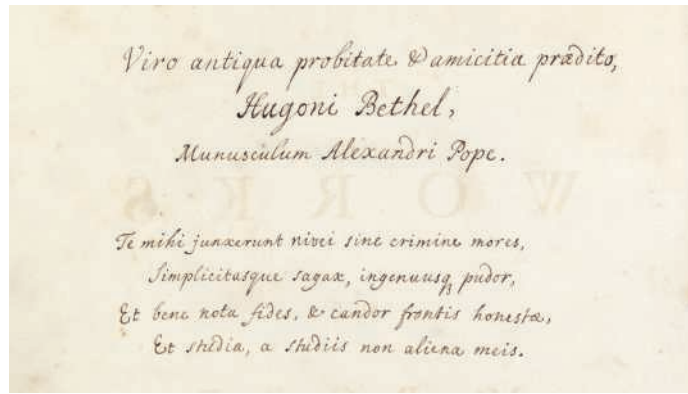 Viro antiqua probitate & amicitia prædito,
Hugoni Bethel,
Munusculum Alexandri Pope.
WORKS
Te mihi junxerunt nivei sine crimine mores,
Simplicitasque sagax, ingenuusq; pudor,
Et bene nota fides, & candor frontis honestæ,
Et studia, a studiis non aliena meis.